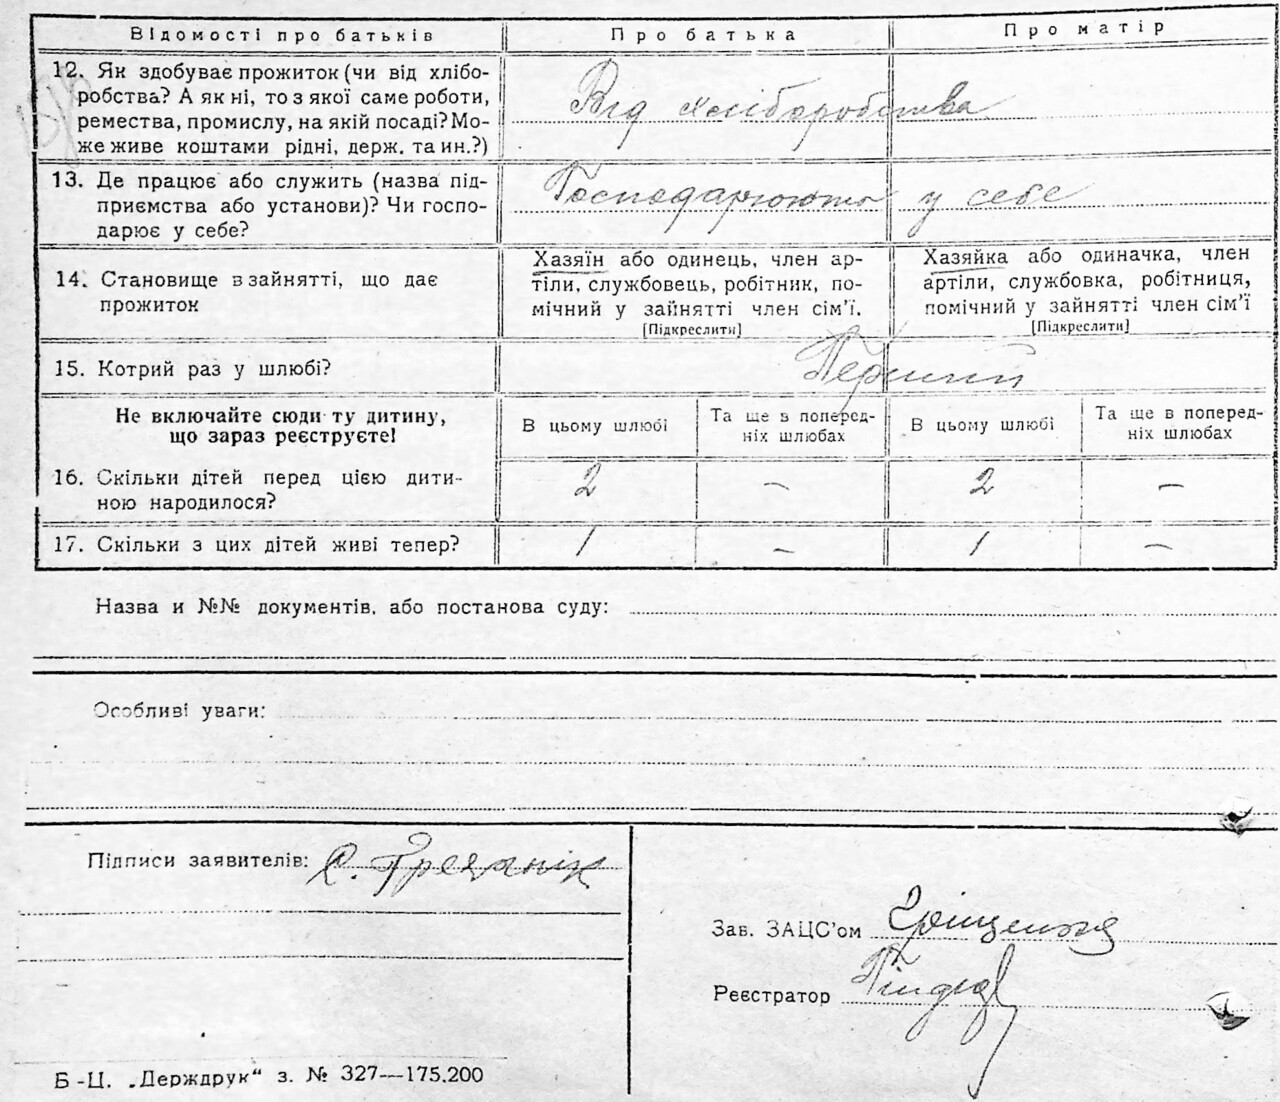 Відомості про батьків
Про батька
Про матір
12. Як здобуває прожиток (чи від хлібо-
робства? А як ні, то з якої саме роботи,
ремества, промислу, на якій посаді? Мо-
же живе коштами рідні, держ. та ин.?)
Від хліборобства
13. Де працює або служить (назва під-
приємства або установи)? Чи госпо-
дарює у себе?
Господарюють у себе
14. Становище в зайнятті, що дає
прожиток
Хазяїн або одинець, член ар-
тіли, службовець, робітник, по-
мічний у зайнятті член сім'ї.
[Підкреслити]
Хазяйка або одиначка, член
артіли, службовка, робітниця,
помічний у зайнятті член сім'ї
[Підкреслити]
15. Котрий раз у шлюбі?
Перший
Не включайте сюди ту дитину,
що зараз реєструєте!
В цьому шлюбі
Та ще в поперед-
ніх шлюбах
В цьому шлюбі
Та ще в поперед-
ніх шлюбах
16. Скільки дітей перед цією дити-
ною народилося?
2 – 2 –
17. Скільки з цих дітей живі тепер?
1 – 1 –
Назва и №№ документів, або постанова суду:
Особливі уваги:
Підписи заявителів:
Зав. ЗАЦС'ом Гріщенко
Реєстратор
Б-Ц. „Держдрук" з. № 327—175.200